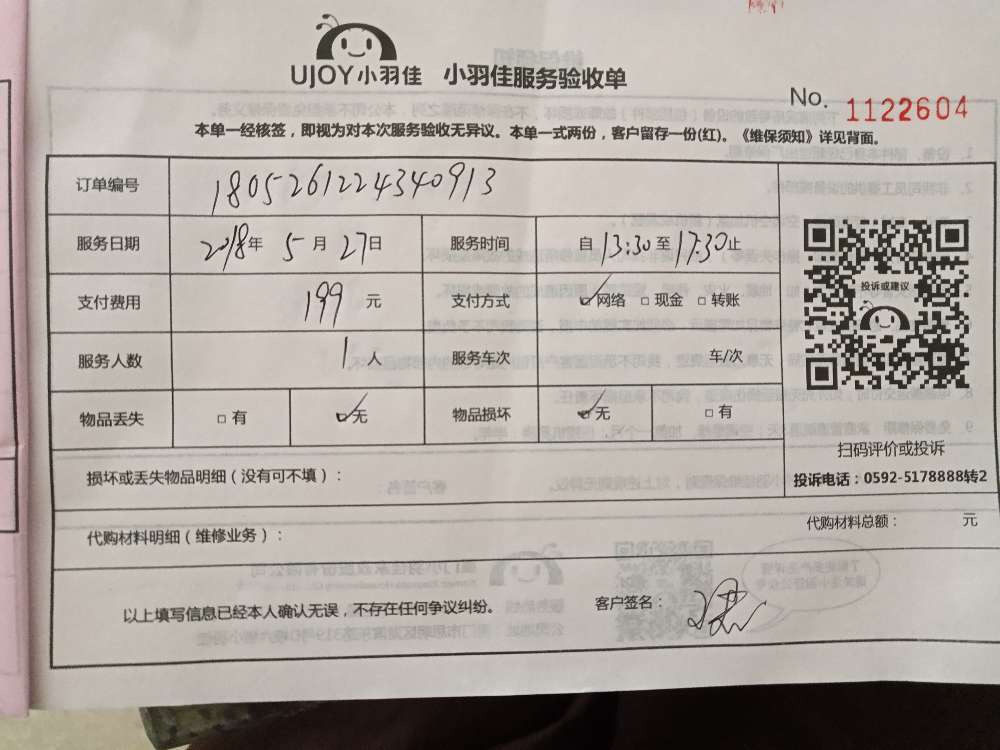 UJOY小羽佳 小羽佳服务验收单
No. 1122604
本单一经核签，即视为对本次服务验收无异议。本单一式两份，客户留存一份(红)。《维保须知》详见背面。
订单编号 1805261224340913
服务日期 2018年 5月 27日 服务时间 自13:30至17:30止
支付费用 199 元 支付方式 ☑网络 □现金 □转账
投诉或建议
服务人数 1人 服务车次 车/次
物品丢失 □有 ☑无 物品损坏 ☑无 □有
扫码评价或投诉
损坏或丢失物品明细（没有可不填）：
投诉电话：0592-5178888转2
代购材料明细（维修业务）：
代购材料总额： 元
以上填写信息已经本人确认无误，不存在任何争议纠纷。 客户签名：